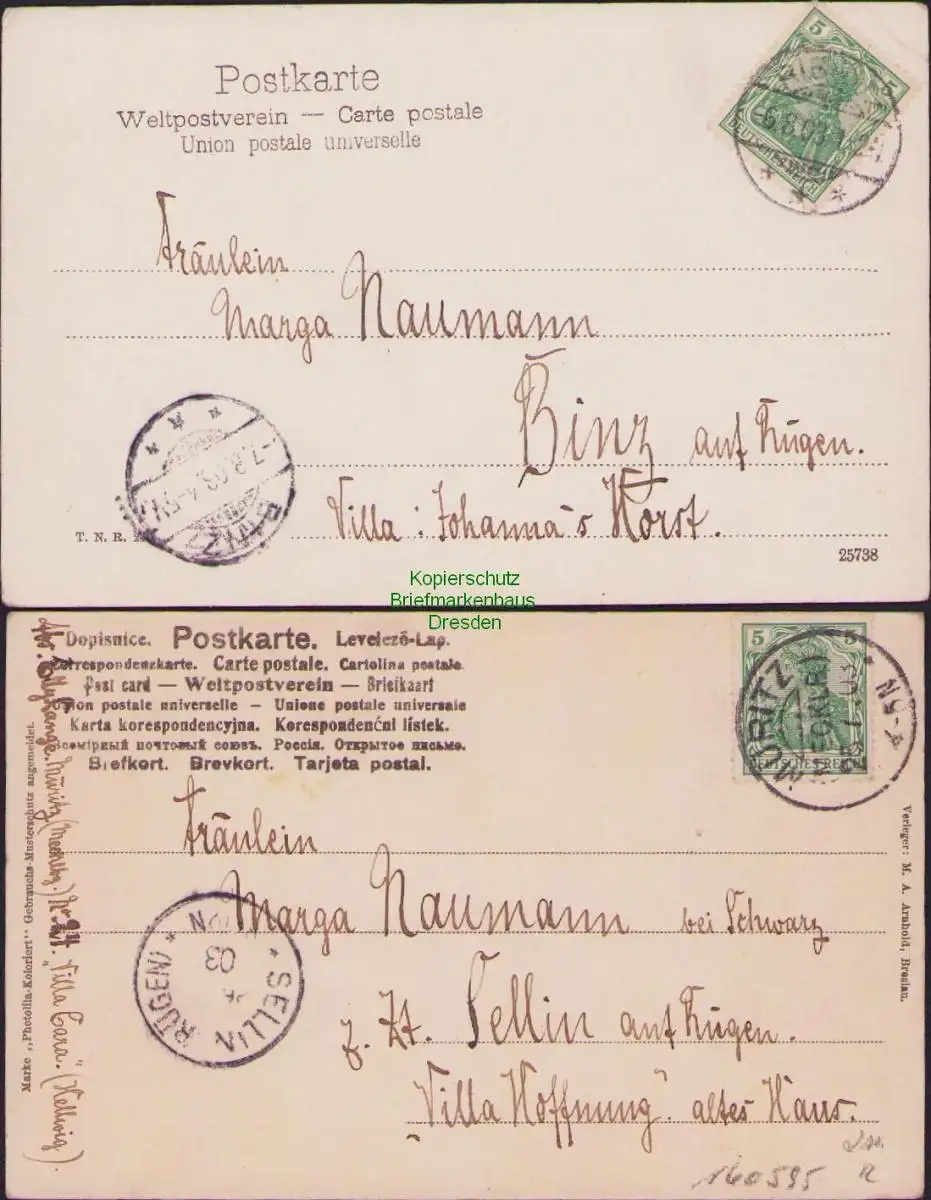 Postkarte
Weltpostverein — Carte postale
Union postale universelle
5 5
6.8.03
DEUTSCHES REICH
Fräulein
Marga Naumann
Binz auf Rügen.
Villa: Johanna's Horst.
7.8.03. 4-5N.
BINZ
T. N. R.
25738
Kopierschutz
Briefmarkenhaus
Dresden
Dopisnice. Postkarte. Levelező-Lap.
Correspondenzkarte. Carte postale. Cartolina postale.
Post card — Weltpostverein — Briefkaart
Union postale universelle - Unione postale universale
Karta korespondencyjna. Korespondenční listek.
Всемірный почтовый союзъ. Россія. Открытое письмо.
Brefkort. Brevkort. Tarjeta postal.
5 5
MÜRITZ
03
4-5N
DEUTSCHES REICH
Fräulein
Marga Naumann bei Schwarz
z. Zt. Sellin auf Rügen.
"Villa Hoffnung" altes Haus.
* SELLIN (RÜGEN) *
03
N
Marke „Photolila-Koloriert" Gebrauchs-Musterschutz angemeldet.
Lange. Müritz (Mecklbg.) No 24. "Villa Cara". (Hellwig).
Verleger: M. A. Arnhold, Breslau.
160595
R